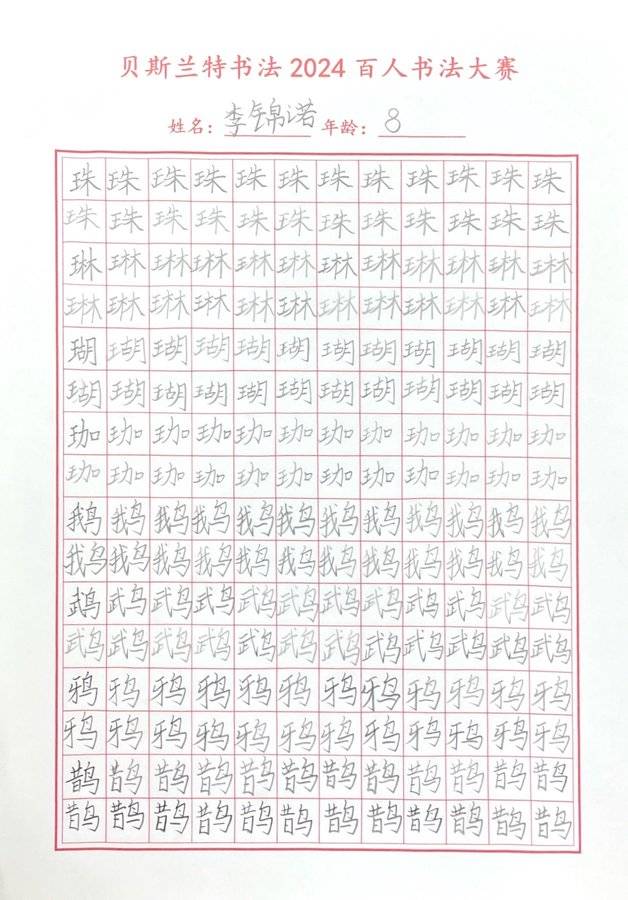 贝斯兰特书法2024百人书法大赛
姓名：李锦诺 年龄：8
珠珠珠珠珠珠珠珠珠珠珠珠
珠珠珠珠珠珠珠珠珠珠珠珠
琳琳琳琳琳琳琳琳琳琳琳琳
琳琳琳琳琳琳琳琳琳琳琳琳
瑚瑚瑚瑚瑚瑚瑚瑚瑚瑚瑚瑚
瑚瑚瑚瑚瑚瑚瑚瑚瑚瑚瑚瑚
珈珈珈珈珈珈珈珈珈珈珈珈
珈珈珈珈珈珈珈珈珈珈珈珈
鹅鹅鹅鹅鹅鹅鹅鹅鹅鹅鹅鹅
鹅鹅鹅鹅鹅鹅鹅鹅鹅鹅鹅鹅
鹉鹉鹉鹉鹉鹉鹉鹉鹉鹉鹉鹉
鹉鹉鹉鹉鹉鹉鹉鹉鹉鹉鹉鹉
鸦鸦鸦鸦鸦鸦鸦鸦鸦鸦鸦鸦
鸦鸦鸦鸦鸦鸦鸦鸦鸦鸦鸦鸦
鹊鹊鹊鹊鹊鹊鹊鹊鹊鹊鹊鹊
鹊鹊鹊鹊鹊鹊鹊鹊鹊鹊鹊鹊